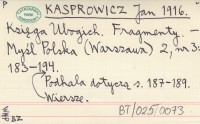 P
KASPROWICZ Jan 1916.
Księga Ubogich. Fragmenty. -
Myśl Polska (Warszawa) 2, nr 3:
183-194.
(Podhala dotyczą s. 187-189.
Wiersze.
BZ
BT/025/0073